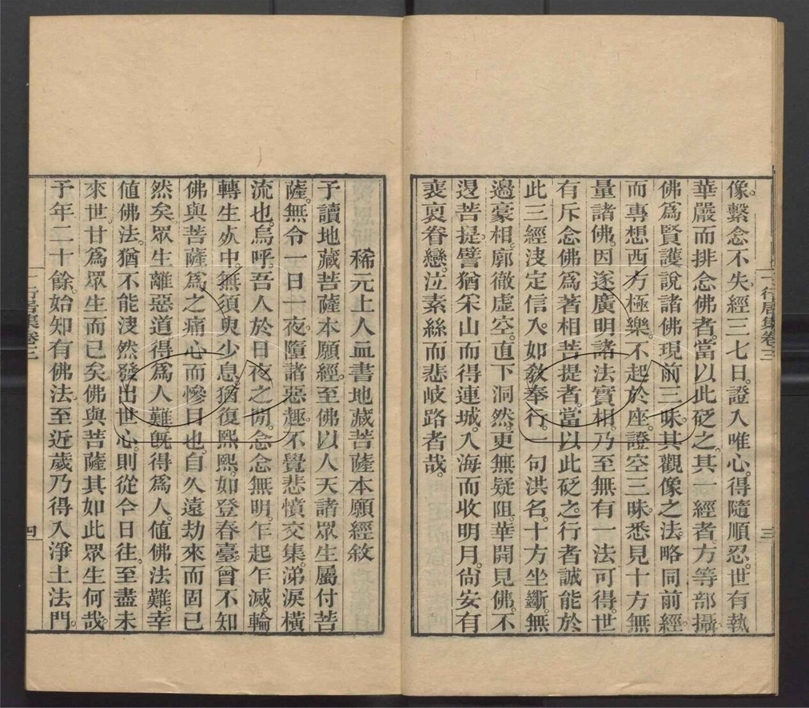 像繫念不失經三七日證入唯心得隨順忍世有執
華嚴而排念佛者當以此砭之其一經者方等部攝
佛爲賢護說諸佛現前三昧其觀像之法略同前經
而專想西方極樂不起於座證空三昧悉見十方無
量諸佛因遂廣明諸法實相乃至無有一法可得世
有斥念佛爲著相菩提者當以此砭之行者誠能於
此三經決定信入如敎奉行一句洪名十方坐斷無
邊豪相廓徹虛空直下洞然更無疑阻華開見佛不
退菩提譬猶采山而得連城入海而收明月尙安有
裵裒眷戀泣素絲而悲岐路者哉
一行居集卷三
三
稀元上人血書地藏菩薩本願經敘
予讀地藏菩薩本願經至佛以人天諸眾生屬付菩
薩無令一日一夜墮諸惡趣不覺悲憤交集涕淚橫
流也烏呼吾人於日夜之閒念念無明乍起乍滅輪
轉生死中無須臾少息猶復熙熙如登春臺曾不知
佛與菩薩爲之痛心而慘目也自久遠劫來而固已
然矣眾生離惡道得爲人難旣得爲人值佛法難幸
值佛法猶不能決然發出世心則從今日往至盡未
來世甘爲眾生而已矣佛與菩薩其如此眾生何哉
予年二十餘始知有佛法至近歲乃得入淨土法門
一行居集卷三
四